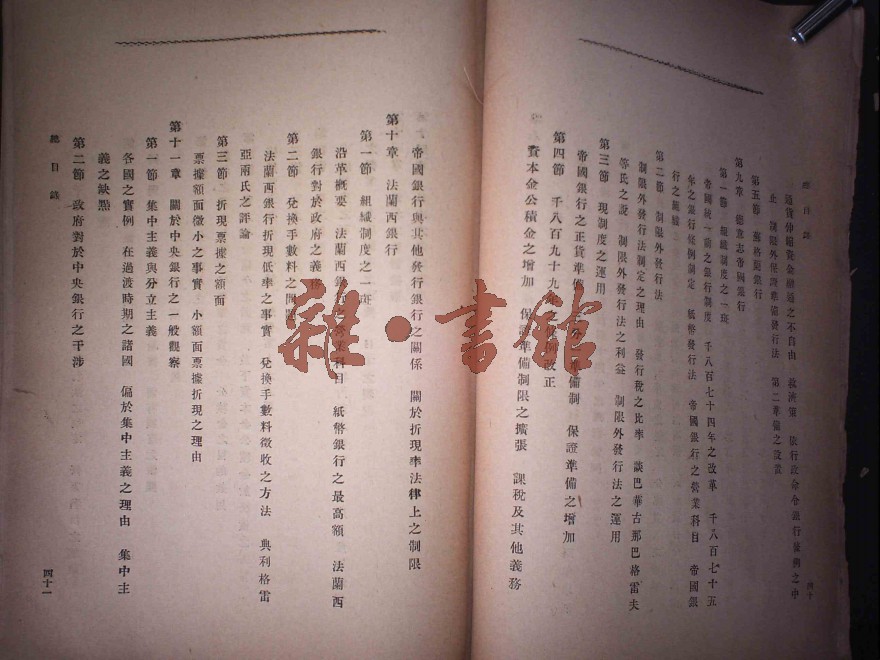 總目錄
四十
通貨伸縮資金融通之不自由 救濟策 依行政命令銀行條例之中
止 制限外保證準備發行法 第二準備之設置
第五節 蘇格蘭銀行
第九章 德意志帝國銀行
第一節 組織制度之一斑
帝國統一前之銀行制度 千八百七十四年之改革 千八百七十五
年之銀行條例制定 紙幣發行法 帝國銀行之營業科目 帝國銀
行之組織
第二節 制限外發行法
制限外發行法制定之理由 發行稅之比率 談巴華古那巴格雷夫
等氏之說 制限外發行法之利益 制限外發行法之運用
第三節 現制度之運用
帝國銀行之正貨準備 三分一準備制 保證準備之增加
第四節 千八百九十九年之條例改正
資本金公積金之增加 保證準備制限之擴張 課稅及其他義務
帝國銀行與其他發行銀行之關係 關於折現率法律上之制限
第十章 法蘭西銀行
第一節 組織制度之一斑
沿革概要 法蘭西銀行之營業科目 紙幣銀行之最高額 法蘭西
銀行對於政府之義務
第二節 兌換手數料之問題
法蘭西銀行折現低率之事實 兌換手數料徵收之方法 奧利格雷
亞兩氏之評論
第三節 折現票據之額面
票據額面微小之事實 小額面票據折現之理由
第十一章 關於中央銀行之一般觀察
第一節 集中主義與分立主義
各國之實例 在過渡時期之諸國 偏於集中主義之理由 集中主
義之缺點
第二節 政府對於中央銀行之干涉
總目錄
四十一
雜·書館